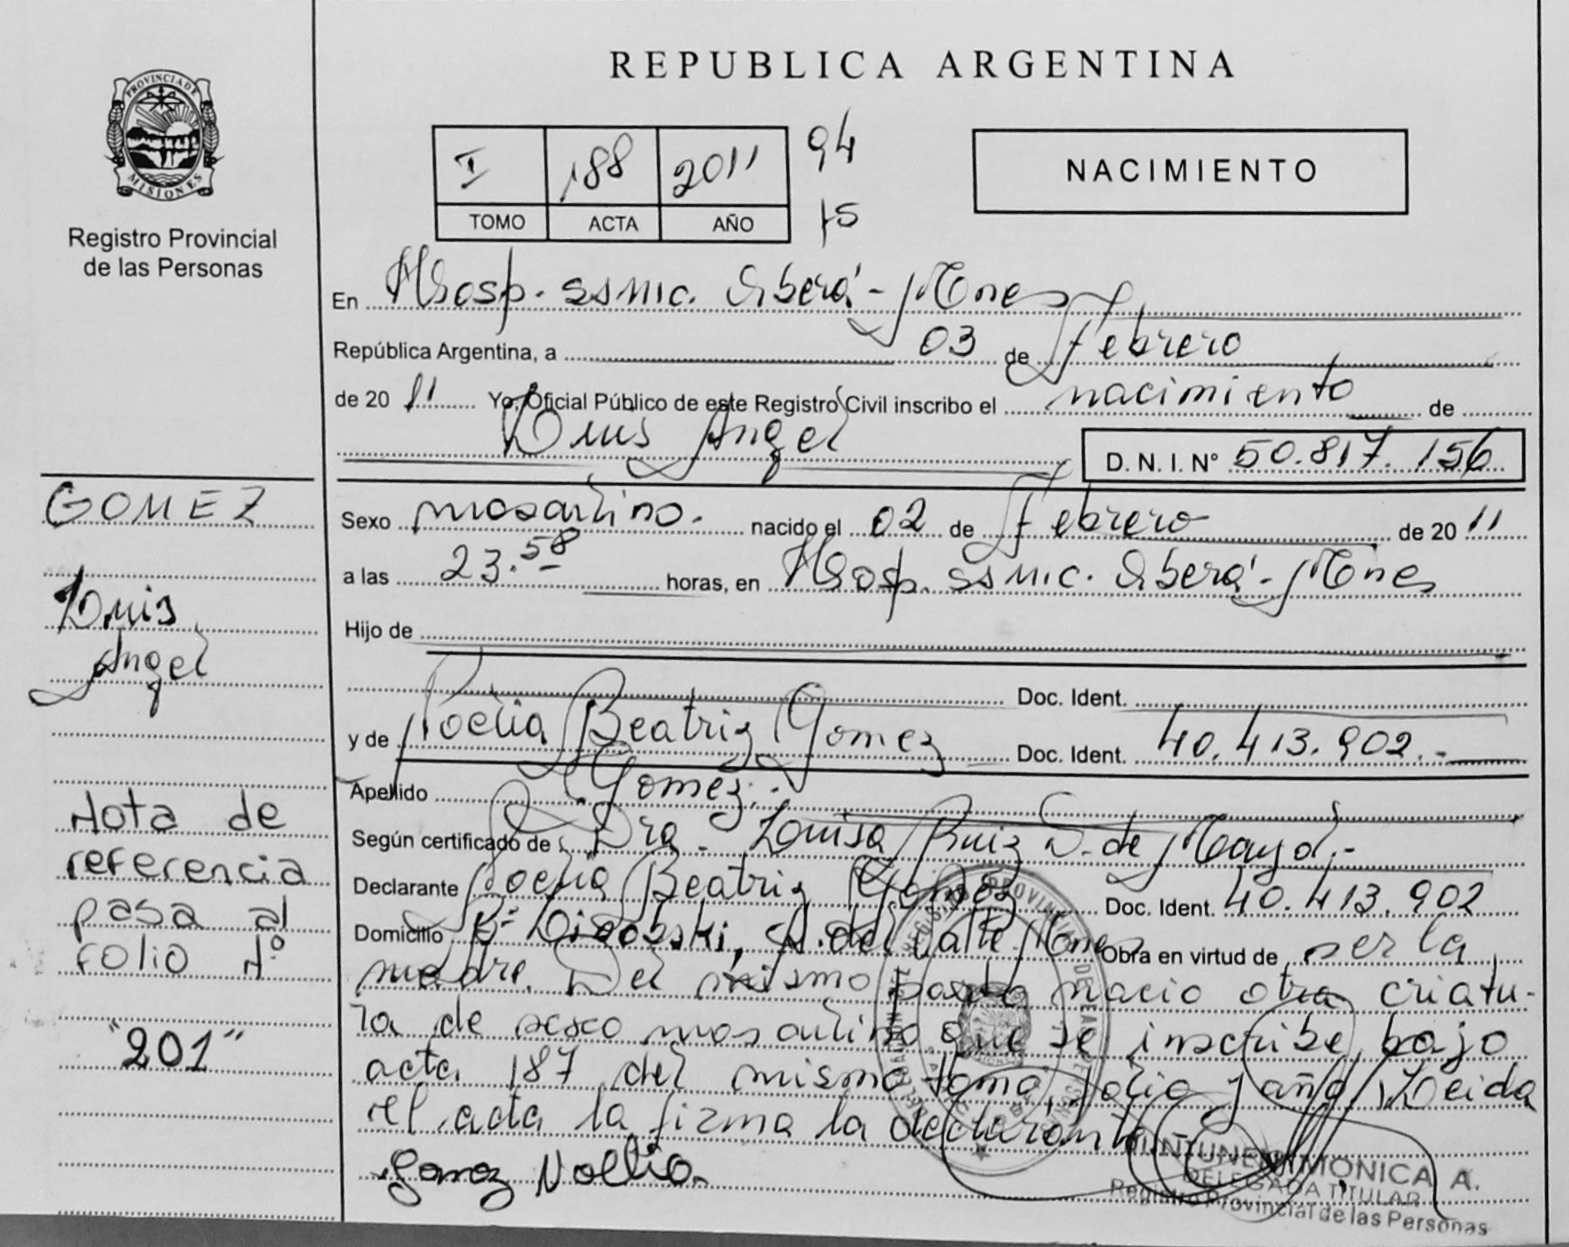 PROVINCIA DE
MISIONES
Registro Provincial
de las Personas
REPUBLICA ARGENTINA
I 188 2011 94
TOMO ACTA AÑO 95
NACIMIENTO
En Hosp. SSMIC. Oberá - Mnes
República Argentina, a 03 de Febrero
de 2011 Yo, Oficial Público de este Registro Civil inscribo el nacimiento de
Luis Angel D. N. I. Nº 50.817.156
Sexo masculino. nacido el 02 de Febrero de 2011
a las 23.58 horas, en Hosp. SSMIC. Oberá - Mnes
Hijo de
Doc. Ident.
y de Noelia Beatriz Gomez Doc. Ident. 40.413.902.-
Apellido Gomez.-
Según certificado de Dra. Luisa Ruiz D. de
Declarante Noelia Beatriz Gomez Doc. Ident. 40.413.902
Domicilio del Valle Mnes Obra en virtud de ser la
madre. Del mismo parto nacio otra criatu-
ra de sexo masculino que se inscribe bajo
acta 187 del mismo tomo, folio y año. Leida
el acta la firma la declarante.-
Gomez Noelia.
MONICA A.
DELEGADA TITULAR
Registro Provincial de las Personas
GOMEZ
Luis
Angel
Nota de
referencia
pasa al
folio Nº
"201"